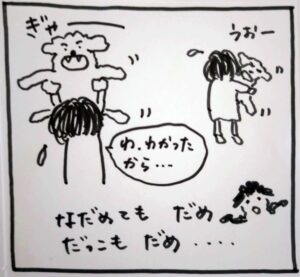 ぎゃー
うおー
わ、わかった
から…
なだめても だめ
だっこも だめ ‥‥